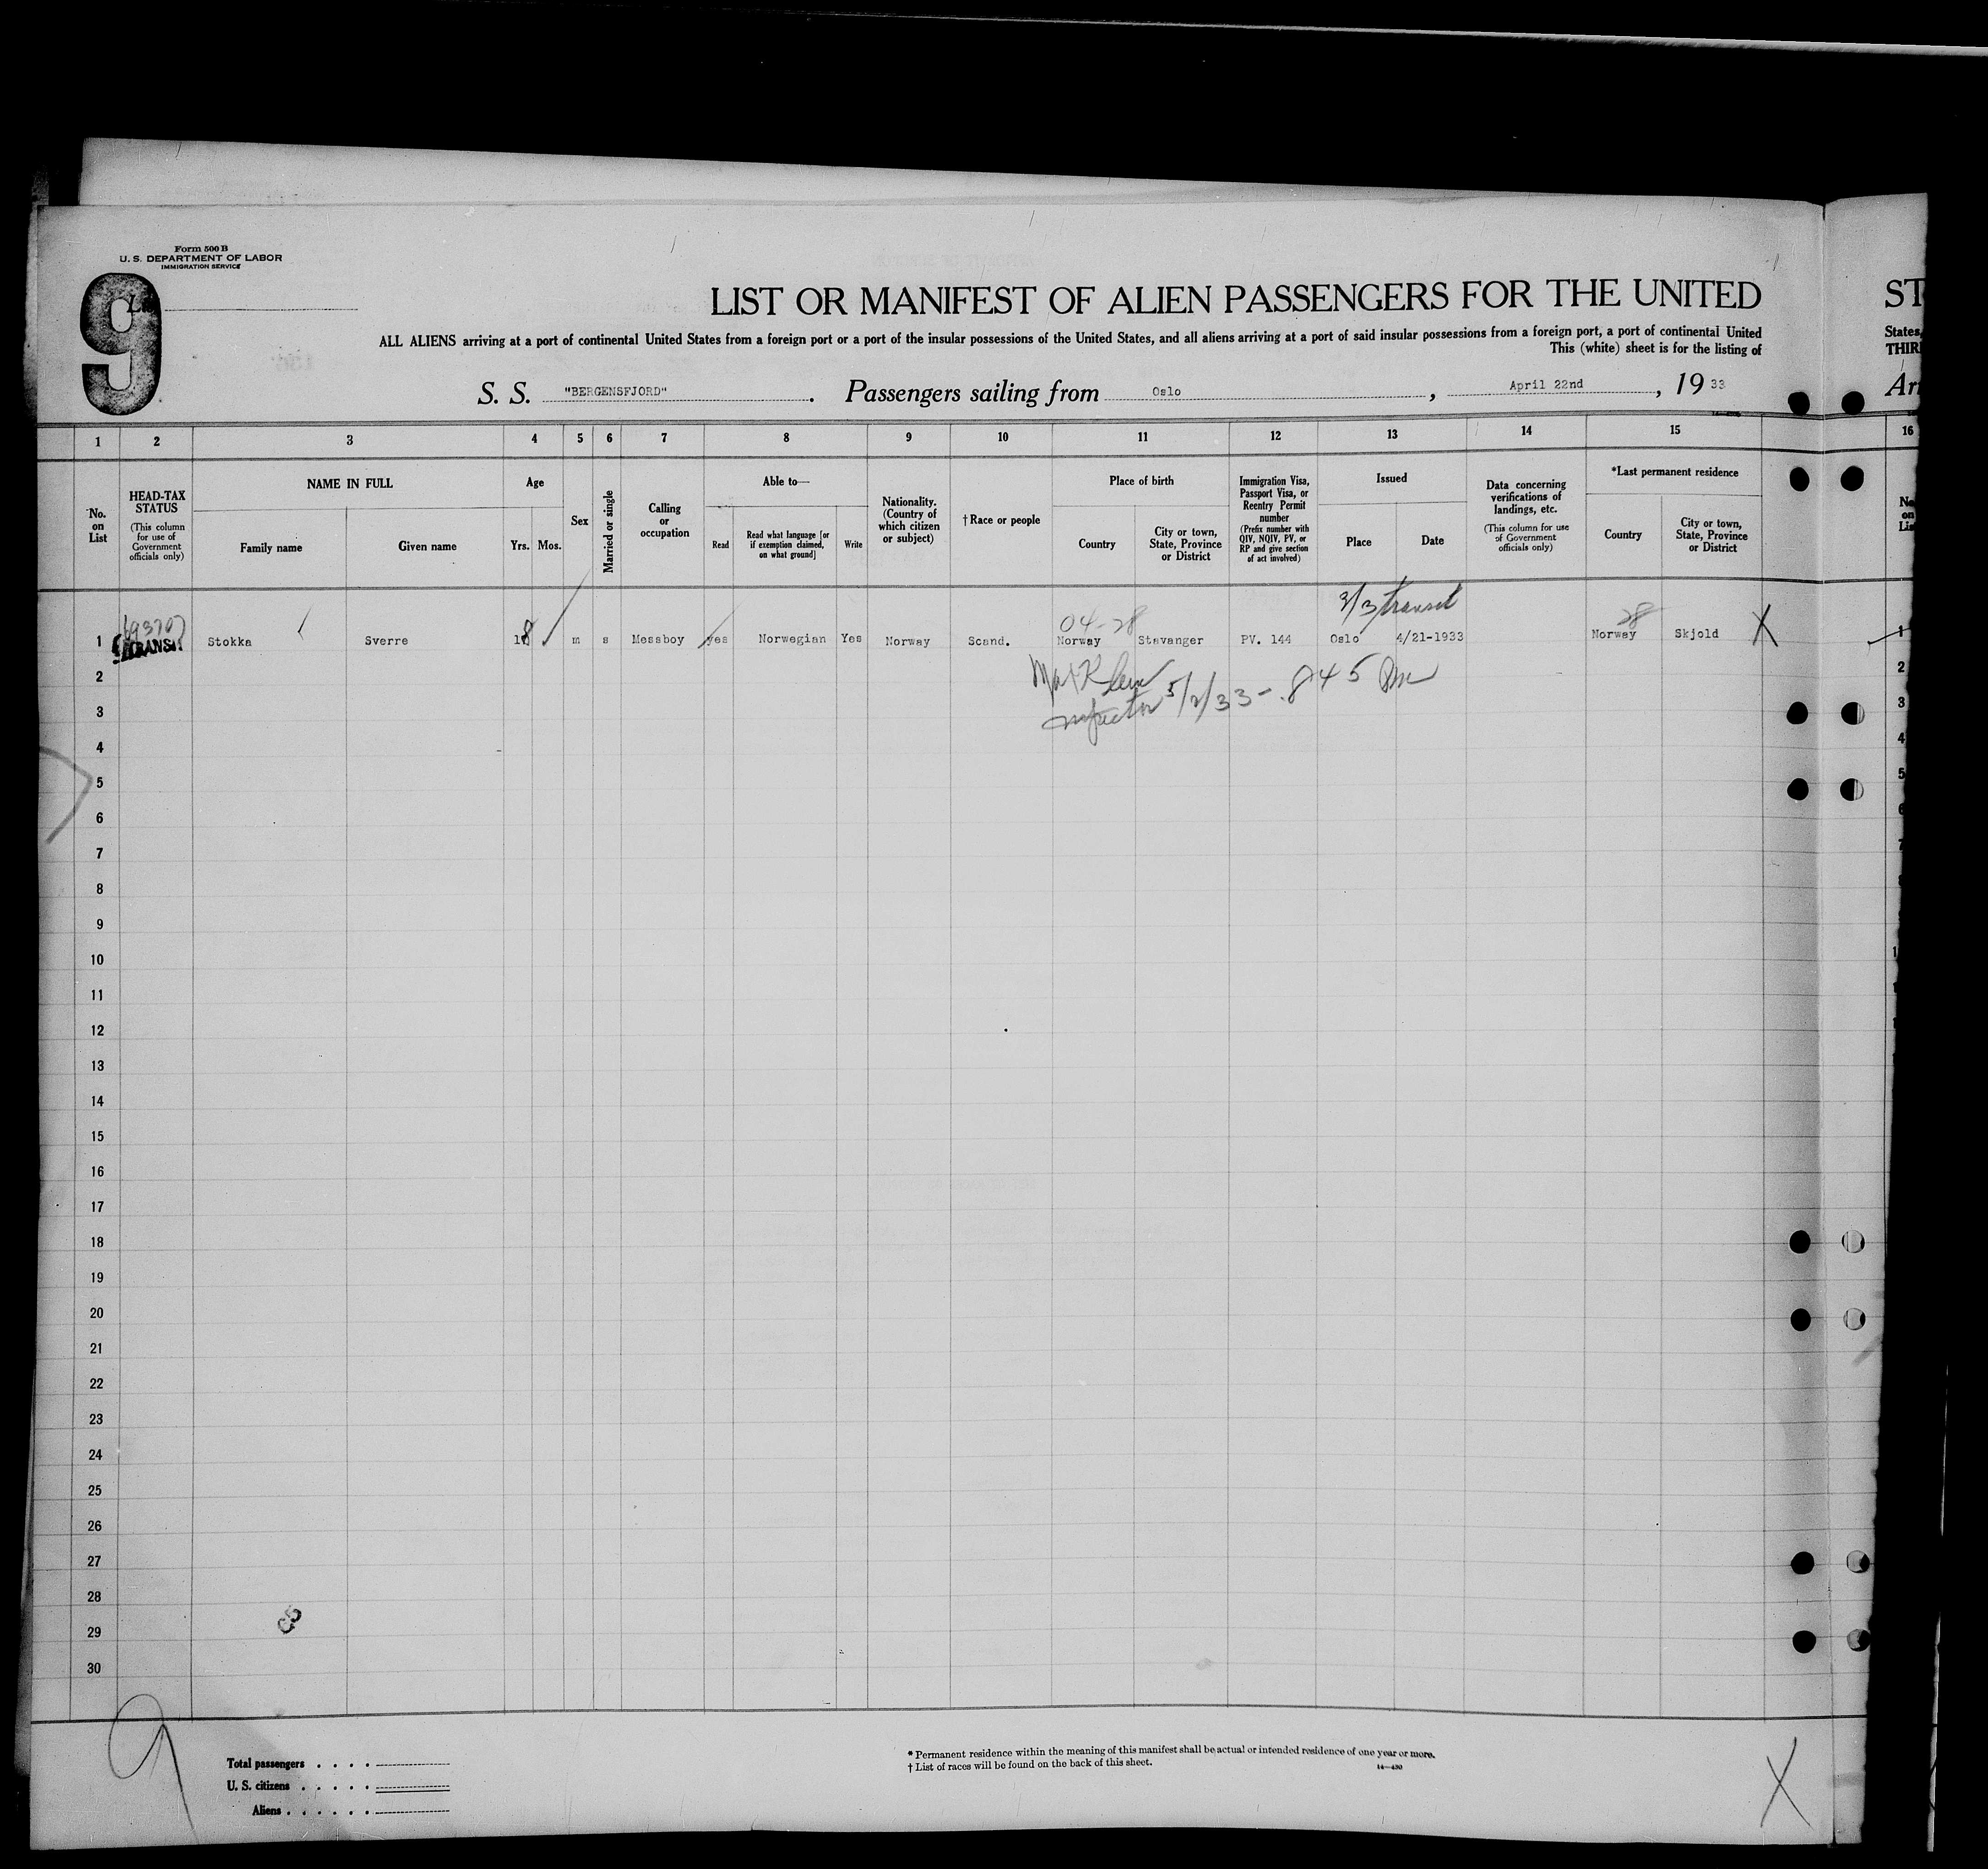 Form 500 B
U. S. DEPARTMENT OF LABOR
IMMIGRATION SERVICE
9
LIST OR MANIFEST OF ALIEN PASSENGERS FOR THE UNITED
ST
ALL ALIENS arriving at a port of continental United States from a foreign port or a port of the insular possessions of the United States, and all aliens arriving at a port of said insular possessions from a foreign port, a port of continental United
States,
This (white) sheet is for the listing of
S. S. "BERGENSFJORD". Passengers sailing from Oslo, April 22nd, 19 33
1 2 3 4 5 6 7 8 9 10 11 12 13 14 15 16
No. on List
HEAD-TAX STATUS
(This column for use of Government officials only)
NAME IN FULL
Family name
Given name
Age
Yrs. Mos.
Sex
Married or single
Calling or occupation
Able to—
Read
Read what language [or if exemption claimed, on what ground]
Write
Nationality. (Country of which citizen or subject)
†Race or people
Place of birth
Country
City or town, State, Province or District
Immigration Visa, Passport Visa, or Reentry Permit number
(Prefix number with QIV, NQIV, PV, or RP and give section of act involved)
Issued
Place
Date
Data concerning verifications of landings, etc.
(This column for use of Government officials only)
*Last permanent residence
Country
City or town, State, Province or District
3/3 transit
04-28
28
1 TRANSIT Stokka Sverre 18 m s Messboy yes Norwegian Yes Norway Scand. Norway Stavanger PV. 144 Oslo 4/21-1933 Norway Skjold X
Inspector 5/2/33 - 845 Pm
2
3
4
5
6
7
8
9
10
11
12
13
14
15
16
17
18
19
20
21
22
23
24
25
26
27
28
29
30
9
Total passengers
U. S. citizens
Aliens
* Permanent residence within the meaning of this manifest shall be actual or intended residence of one year or more.
† List of races will be found on the back of this sheet.
14—430
X